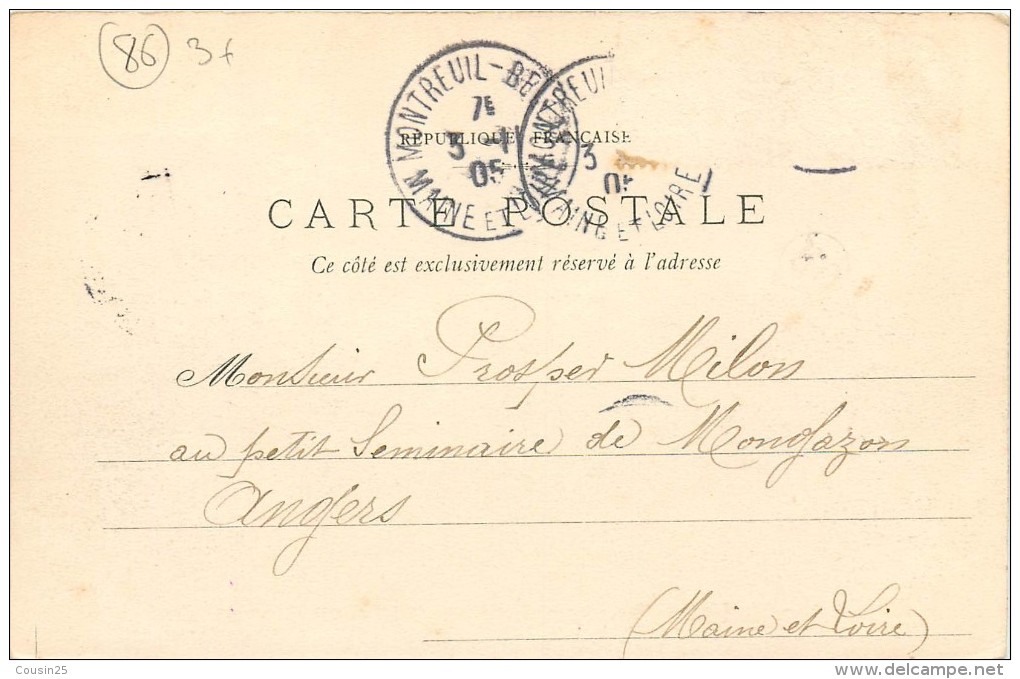 86 3f
MONTREUIL-BE
7E
3 -1
05
MAINE ET LOIRE
MONTREUIL
3
05
MAINE ET LOIRE
RÉPUBLIQUE FRANÇAISE
CARTE POSTALE
Ce côté est exclusivement réservé à l'adresse
Monsieur Prosper Milon
au petit Seminaire de Mongazon
Angers
(Maine et Loire)
Cousin25
www.delcampe.net